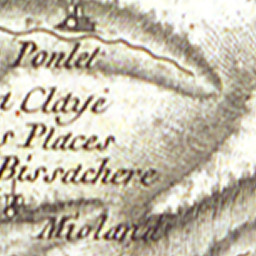 Ponlet
t Clayé
s Places
Bissachere
Mioland